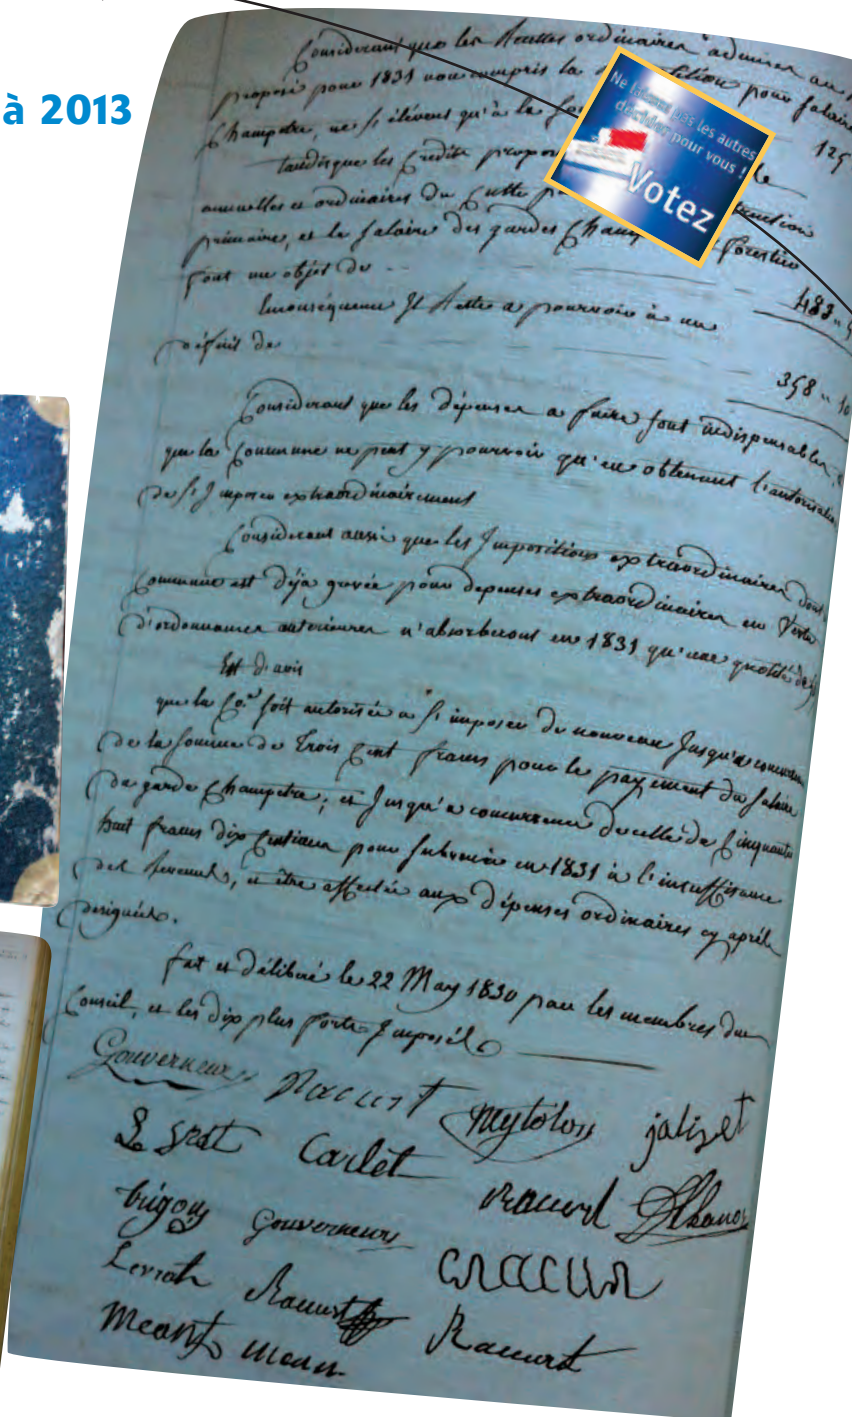 à 2013
Considerant que les Recettes ordinaires admises au
proposé pour 1831 non compris la pour salaire
Champetre, ne s'élèvent qu'à la 125
tandisque les Credits
annuelles et ordinaires du Culte
primaire, et le salaire des gardes forestier
font un objet de
483
Enconséquence Il Reste a pourvoir à un
déficit de
358 " 10
Considerant que les dépenses a faire sont indispensables,
que la Commune ne peut y pourvoir qu'en obtenant l'autorisation
de s'Imposer extraordinairement
Considerant aussi que les Impositions extraordinaires dont
Commune est déja grevée pour depenses extraordinaires en Vertu
d'ordonnances anterieures n'absorberont en 1831 qu'une quotité de
Est d'avis
que la Co.ne soit autorisée a s'imposer de nouveau Jusqu'a
de la somme de Trois Cent francs pour le payement du salaire
du garde Champetre; et Jusqu'a concurrence de celle de Cinquante
huit francs dix Centimes pour subvenir en 1831 à l'insuffisance
des Revenus, et être affectée aux dépenses ordinaires cy après
designées.
fait et délibéré le 22 May 1830 par les membres du
Conseil, et les dix plus forts Imposés
Gouverneur Racurt Mytolou jalizet
Carlet Racurt
Gouverneur
Racurt Racurt
Ne laissez pas les autres
décider pour vous !
Votez